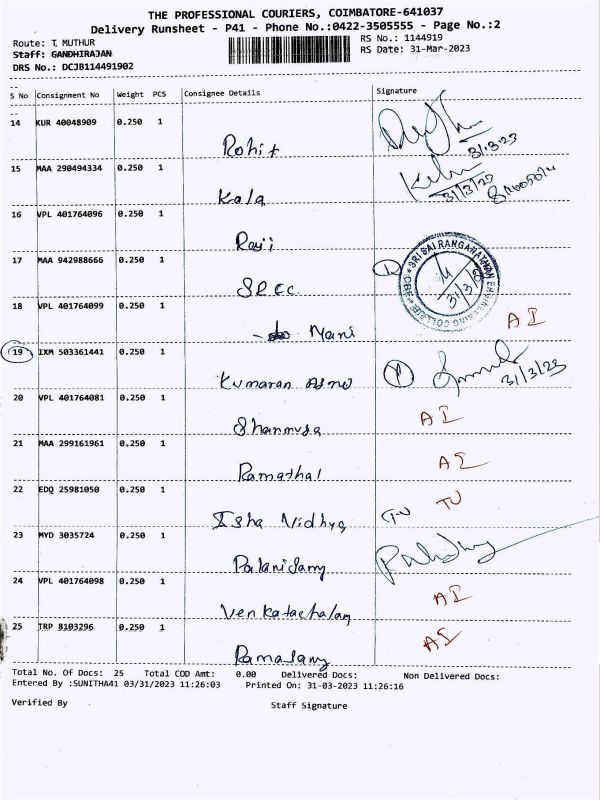 THE PROFESSIONAL COURIERS, COIMBATORE-641037
Delivery Runsheet - P41 - Phone No.:0422-3505555 - Page No.:2
Route: T, MUTHUR RS No.: 1144919
Staff: GANDHIRAJAN RS Date: 31-Mar-2023
DRS No.: DCJB114491902
S No Consignment No Weight PCS Consignee Details Signature
14 KUR 40048909 0.250 1
Rohit 31.3.23
15 MAA 290494334 0.250 1
Kala 31/3/23
16 VPL 401764096 0.250 1
Raji
17 MAA 942988666 0.250 1
SREC
18 VPL 401764099 0.250 1
Mani AI
19 IXM 503361441 0.250 1
Kumaran 31/3/23
20 VPL 401764081 0.250 1
Shanmuga AI
21 MAA 299161961 0.250 1
Ramathal AI
22 EDQ 25981050 0.250 1
Isha Vidhya TU TU
23 MYD 3035724 0.250 1
Palanisamy
24 VPL 401764098 0.250 1
Venkatachalam AI
25 TRP 8103296 0.250 1
Ramasamy AI
Total No. Of Docs: 25 Total COD Amt: 0.00 Delivered Docs: Non Delivered Docs:
Entered By :SUNITHA41 03/31/2023 11:26:03 Printed On: 31-03-2023 11:26:16
Verified By Staff Signature